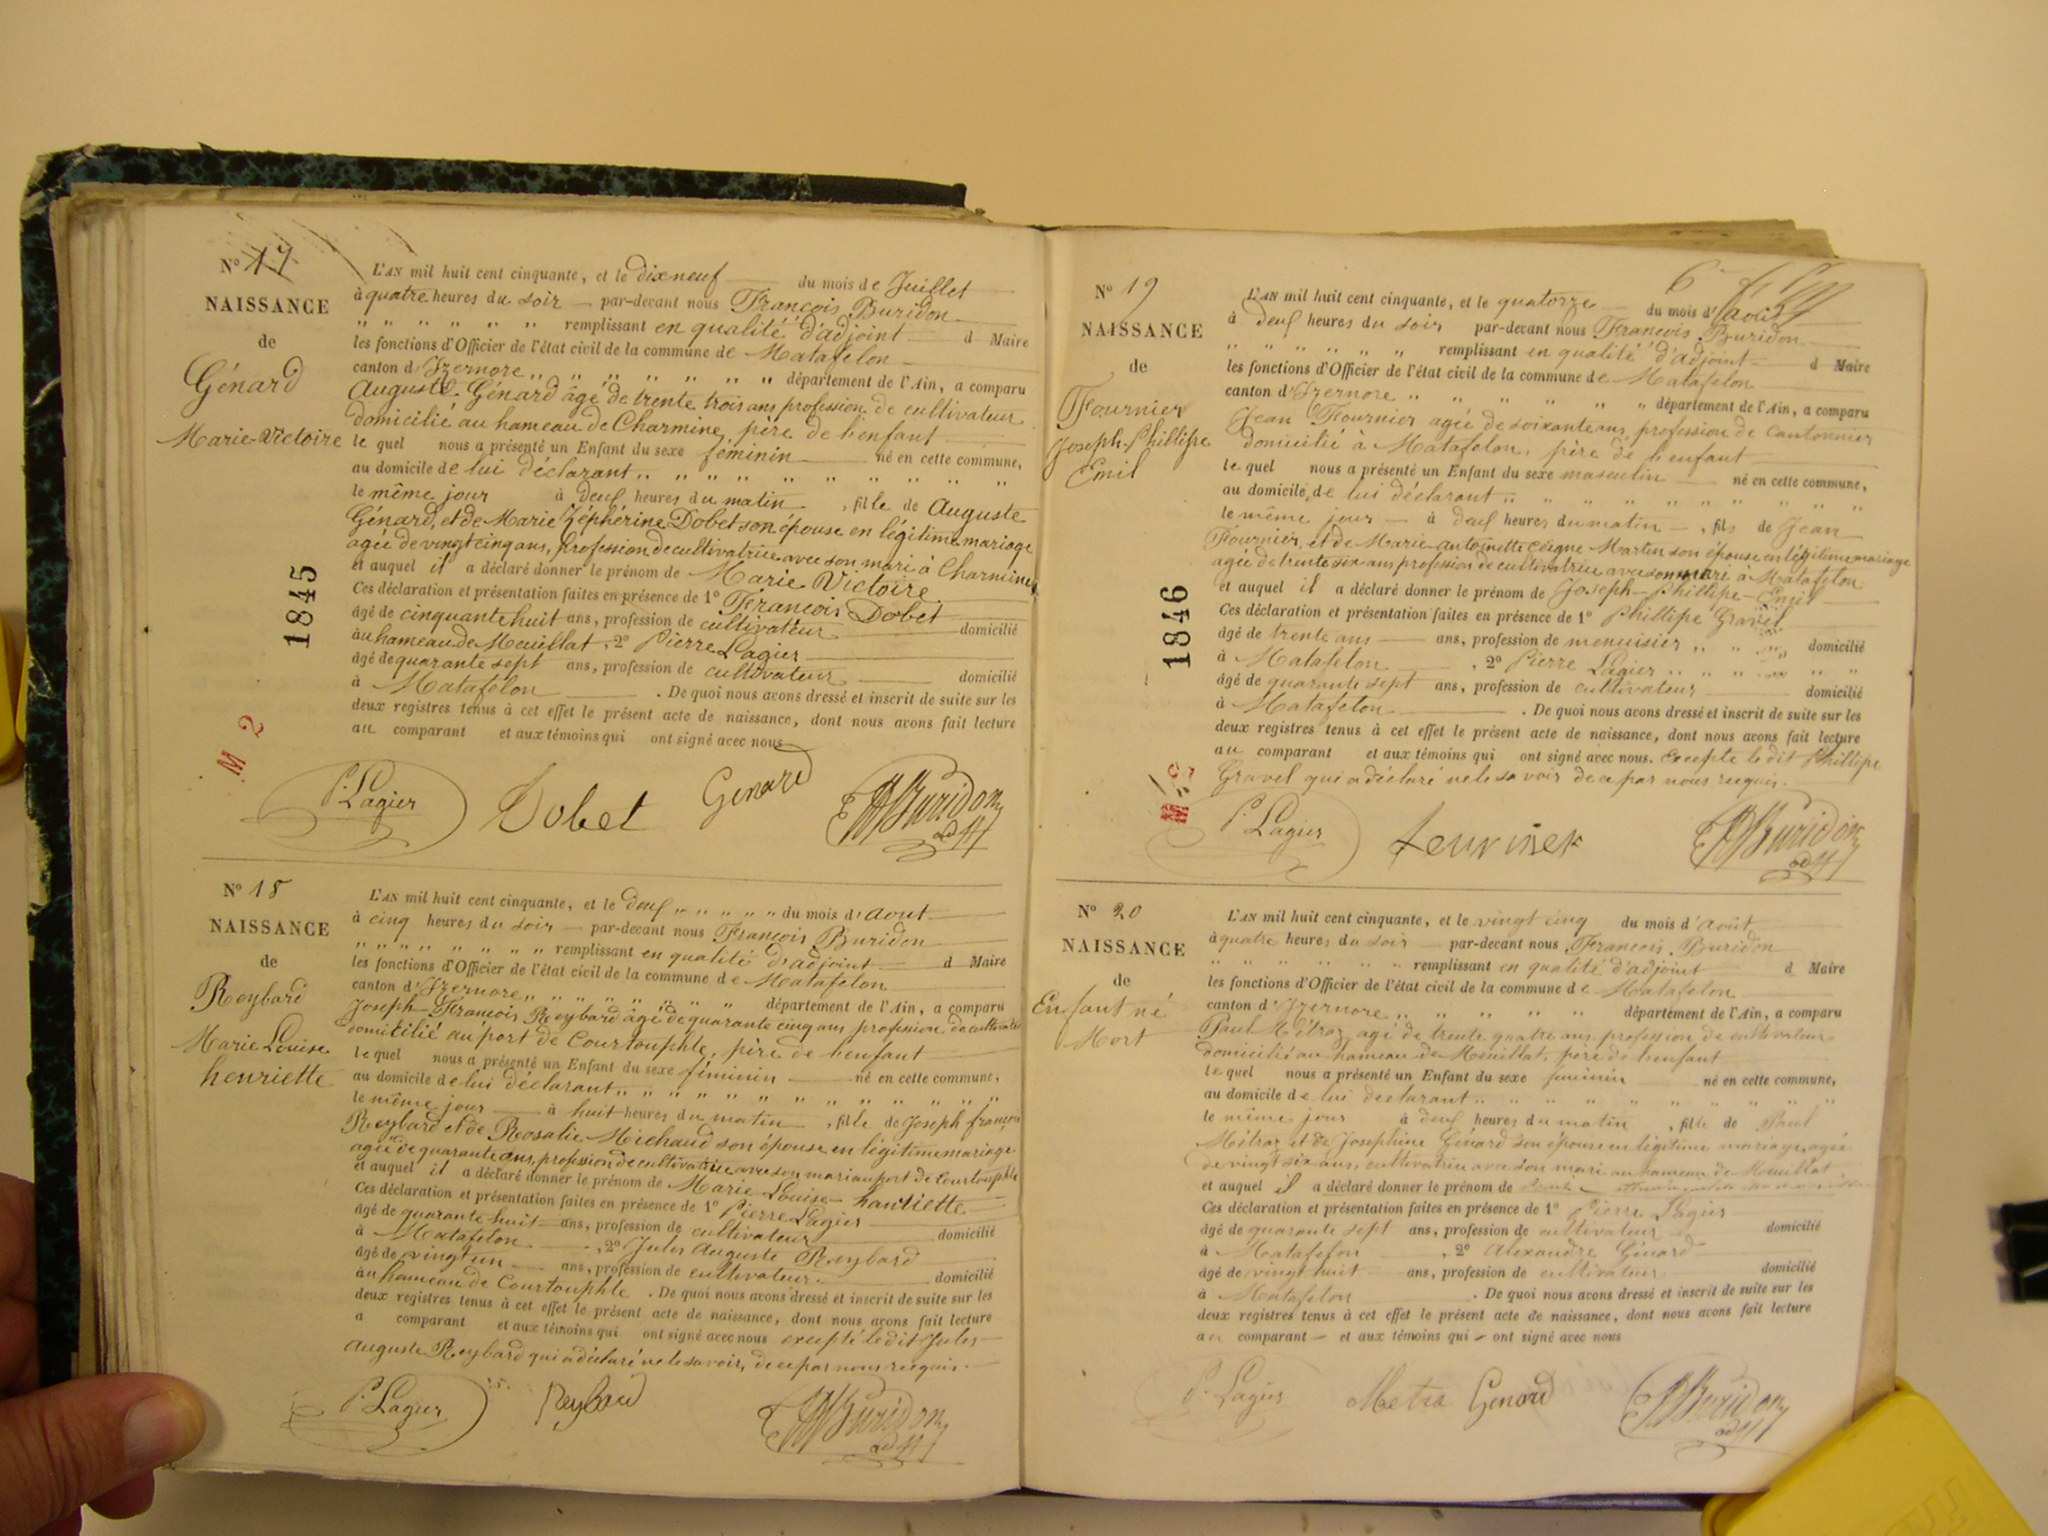 Nº 17
NAISSANCE
de
Génard
Marie-Victoire
1845
M 2
L'AN mil huit cent cinquante, et le dixneuf du mois de Juillet
à quatre heures du soir par-devant nous François Buridon
" " " " " " remplissant en qualité d'adjoint d Maire
les fonctions d'Officier de l'état civil de la commune de Matafelon
canton d'Izernore " " " " " " " " département de l'Ain, a comparu
Auguste Génard âgé de trente trois ans profession de cultivateur
domicilié au hameau de Charmine, père de l'enfant
le quel nous a présenté un Enfant du sexe féminin né en cette commune,
au domicile de lui déclarant " " " " " " " " " "
le même jour à deux heures du matin, fille de Auguste
Génard, et de Marie Zéphérine Dobet son épouse en légitime mariage
agée de vingt cinq ans, profession de cultivatrice avec son mari à Charmines
et auquel il a déclaré donner le prénom de Marie Victoire
Ces déclaration et présentation faites en présence de 1º François Dobet
âgé de cinquante huit ans, profession de cultivateur domicilié
au hameau de Meuillat, 2º Pierre Lagier
âgé de quarante sept ans, profession de cultivateur domicilié
à Matafelon. De quoi nous avons dressé et inscrit de suite sur les
deux registres tenus à cet effet le présent acte de naissance, dont nous avons fait lecture
au comparant et aux témoins qui ont signé avec nous
P. Lagier Dobet Genard Buridon adjt
Nº 18
NAISSANCE
de
Reybard
Marie Louise
henriette
L'AN mil huit cent cinquante, et le deux " " " " " du mois d'aout
à cinq heures du soir par-devant nous François Buridon
" " " " " " " " remplissant en qualité d'adjoint d Maire
les fonctions d'Officier de l'état civil de la commune de Matafelon
canton d'Izernore " " " " " " " " département de l'Ain, a comparu
Joseph-François Reybard âgé de quarante cinq ans profession de cultivateur
domicilié au port de Courtouphle, père de l'enfant
le quel nous a présenté un Enfant du sexe féminin né en cette commune,
au domicile de lui déclarant " " " " " " " " " " "
le même jour à huit heures du matin, fille de Joseph françois
Reybard et de Rosalie Michaud son épouse en légitime mariage
agée de quarante ans, profession de cultivatrice avec son mari au port de Courtouphle
et auquel il a déclaré donner le prénom de Marie Louise henriette
Ces déclaration et présentation faites en présence de 1º Pierre Lagier
âgé de quarante huit ans, profession de cultivateur domicilié
à Matafelon, 2º Jules Auguste Reybard
âgé de vingt un ans, profession de cultivateur domicilié
au hameau de Courtouphle. De quoi nous avons dressé et inscrit de suite sur les
deux registres tenus à cet effet le présent acte de naissance, dont nous avons fait lecture
a comparant et aux témoins qui ont signé avec nous excepté le dit Jules
Auguste Reybard qui a déclaré ne le savoir, de ce par nous requis.
P. Lagier Reybard Buridon adjt
6
Nº 19
NAISSANCE
de
Fournier
Joseph-Phillipe
Emil
1846
L'AN mil huit cent cinquante, et le quatorze du mois d'août
à deux heures du soir par-devant nous François Buridon
" " " " " " remplissant en qualité d'adjoint d Maire
les fonctions d'Officier de l'état civil de la commune de Matafelon
canton d'Izernore " " " " " " " département de l'Ain, a comparu
Jean Fournier agée de soixante ans, profession de cantonnier
domicilié à Matafelon, père de l'enfant
le quel nous a présenté un Enfant du sexe masculin né en cette commune,
au domicile de lui déclarant " " " " " " " " "
le même jour à deux heures du matin, fils de Jean
Fournier, et de Marie antoinette Martin son épouse en légitime mariage
agée de trente six ans profession de cultivatrice avec son mari à Matafelon
et auquel il a déclaré donner le prénom de Joseph-Phillipe-Emil
Ces déclaration et présentation faites en présence de 1º Phillipe Gravel
âgé de trente ans ans, profession de menuisier " " " domicilié
à Matafelon, 2º Pierre Lagier " " " " " "
âgé de quarante sept ans, profession de cultivateur domicilié
à Matafelon. De quoi nous avons dressé et inscrit de suite sur les
deux registres tenus à cet effet le présent acte de naissance, dont nous avons fait lecture
au comparant et aux témoins qui ont signé avec nous. Excepte le dit Phillipe
Gravel qui a déclaré ne le savoir de ce par nous requis.
P. Lagier Buridon adjt
Nº 20
NAISSANCE
de
Enfant né
Mort
L'AN mil huit cent cinquante, et le vingt cinq du mois d'août
à quatre heures du soir par-devant nous François Buridon
" " " " " " remplissant en qualité d'adjoint d Maire
les fonctions d'Officier de l'état civil de la commune de Matafelon
canton d'Izernore " " " " " département de l'Ain, a comparu
Paul Métraz agé de trente quatre ans profession de cultivateur
domicilié au hameau de Meuillat, père de l'enfant
le quel nous a présenté un Enfant du sexe féminin né en cette commune,
au domicile de lui déclarant " " " " " " " " "
le même jour à deux heures du matin, fille de Paul
Métraz et de Josephine Génard son épouse en légitime mariage, agée
de vingt six ans, cultivatrice avec son mari au hameau de Meuillat
et auquel il a déclaré donner le prénom de
Ces déclaration et présentation faites en présence de 1º Pierre Lagier
âgé de quarante sept ans, profession de cultivateur domicilié
à Matafelon, 2º Alexandre Génard
âgé de vingt huit ans, profession de cultivateur domicilié
à Matafelon. De quoi nous avons dressé et inscrit de suite sur les
deux registres tenus à cet effet le présent acte de naissance, dont nous avons fait lecture
au comparant et aux témoins qui ont signé avec nous
P. Lagier Metra Genard Buridon adjt